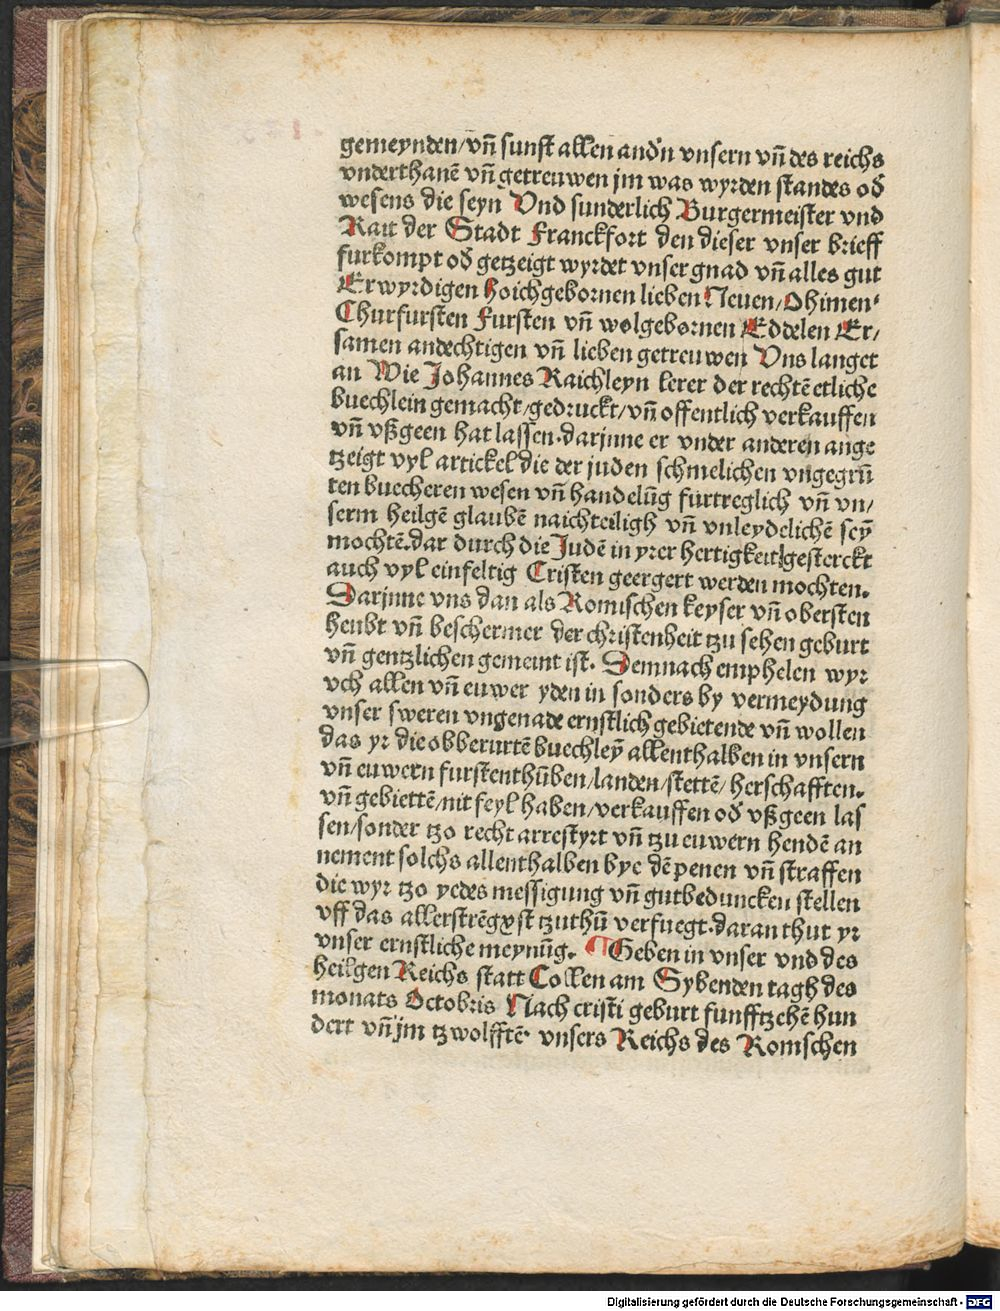 gemeynden/vn̄ sunst allen and'n vnsern vn̄ des reichs
vnderthanē vn̄ getreuwen jm was wyrden standes od'
wesens die seyn Vnd sunderlich Burgermeister vnd
Ratt der Stadt Franckfort den dieser vnser brieff
furkompt od' getzeigt wyrdet vnser gnad vn̄ alles gut
Erwyrdigen hoichgebornen lieben Neuen/Ohimen/
Churfursten Fursten vn̄ wolgebornen Eddelen Er/
samen andechtigen vn̄ lieben getreuwen Vns langet
an Wie Johannes Raichleyn lerer der rechtē etliche
buechlein gemacht/gedruckt/vn̄ offentlich verkauffen
vn̄ vßgeen hat lassen.darjnne er vnder anderen ange
tzeigt vyl artickel die der juden schmelichen vngegrū
ten buecheren wesen vn̄ handelūg furtreglich vn̄ vn/
serm heilgē glaubē naichteiligh vn̄ vnleydelichē seȳ
mochtē.dar durch die Judē in yrer hertigkeit gesterckt
auch vyl einfeltig Cristen geergert werden mochten.
Darjnne vns dan als Romischen keyser vn̄ obersten
heubt vn̄ beschermer der christenheit tzu sehen geburt
vn̄ gentzlichen gemeint ist. Demnach emphelen wyr
vch allen vn̄ euwer yden in sonders by vermeydung
vnser sweren vngenade ernstlich gebietende vn̄ wollen
das yr die obberurtē buechleȳ allenthalben in vnsern
vn̄ euwern furstenthūben/landen/stettē/herschafften.
vn̄ gebiettē/nit feyl haben/verkauffen od' vßgeen las
sen/sonder tzo recht arrestyrt vn̄ tzu euwern hendē an
nement solchs allenthalben bye dē penen vn̄ straffen
die wyr tzo yedes messigung vn̄ gutbeduncken stellen
vff das allerstrēgyst tzuthū verfuegt.daran thut yr
vnser ernstliche meynūg. ¶ Geben in vnser vnd des
heilgen Reichs statt Collen am Sybenden tagh des
monats Octobris Nach cristi geburt funfftzehē hun
dert vn̄ jm tzwolfftē. vnsers Reichs des Romschen
Digitalisierung gefördert durch die Deutsche Forschungsgemeinschaft - DFG